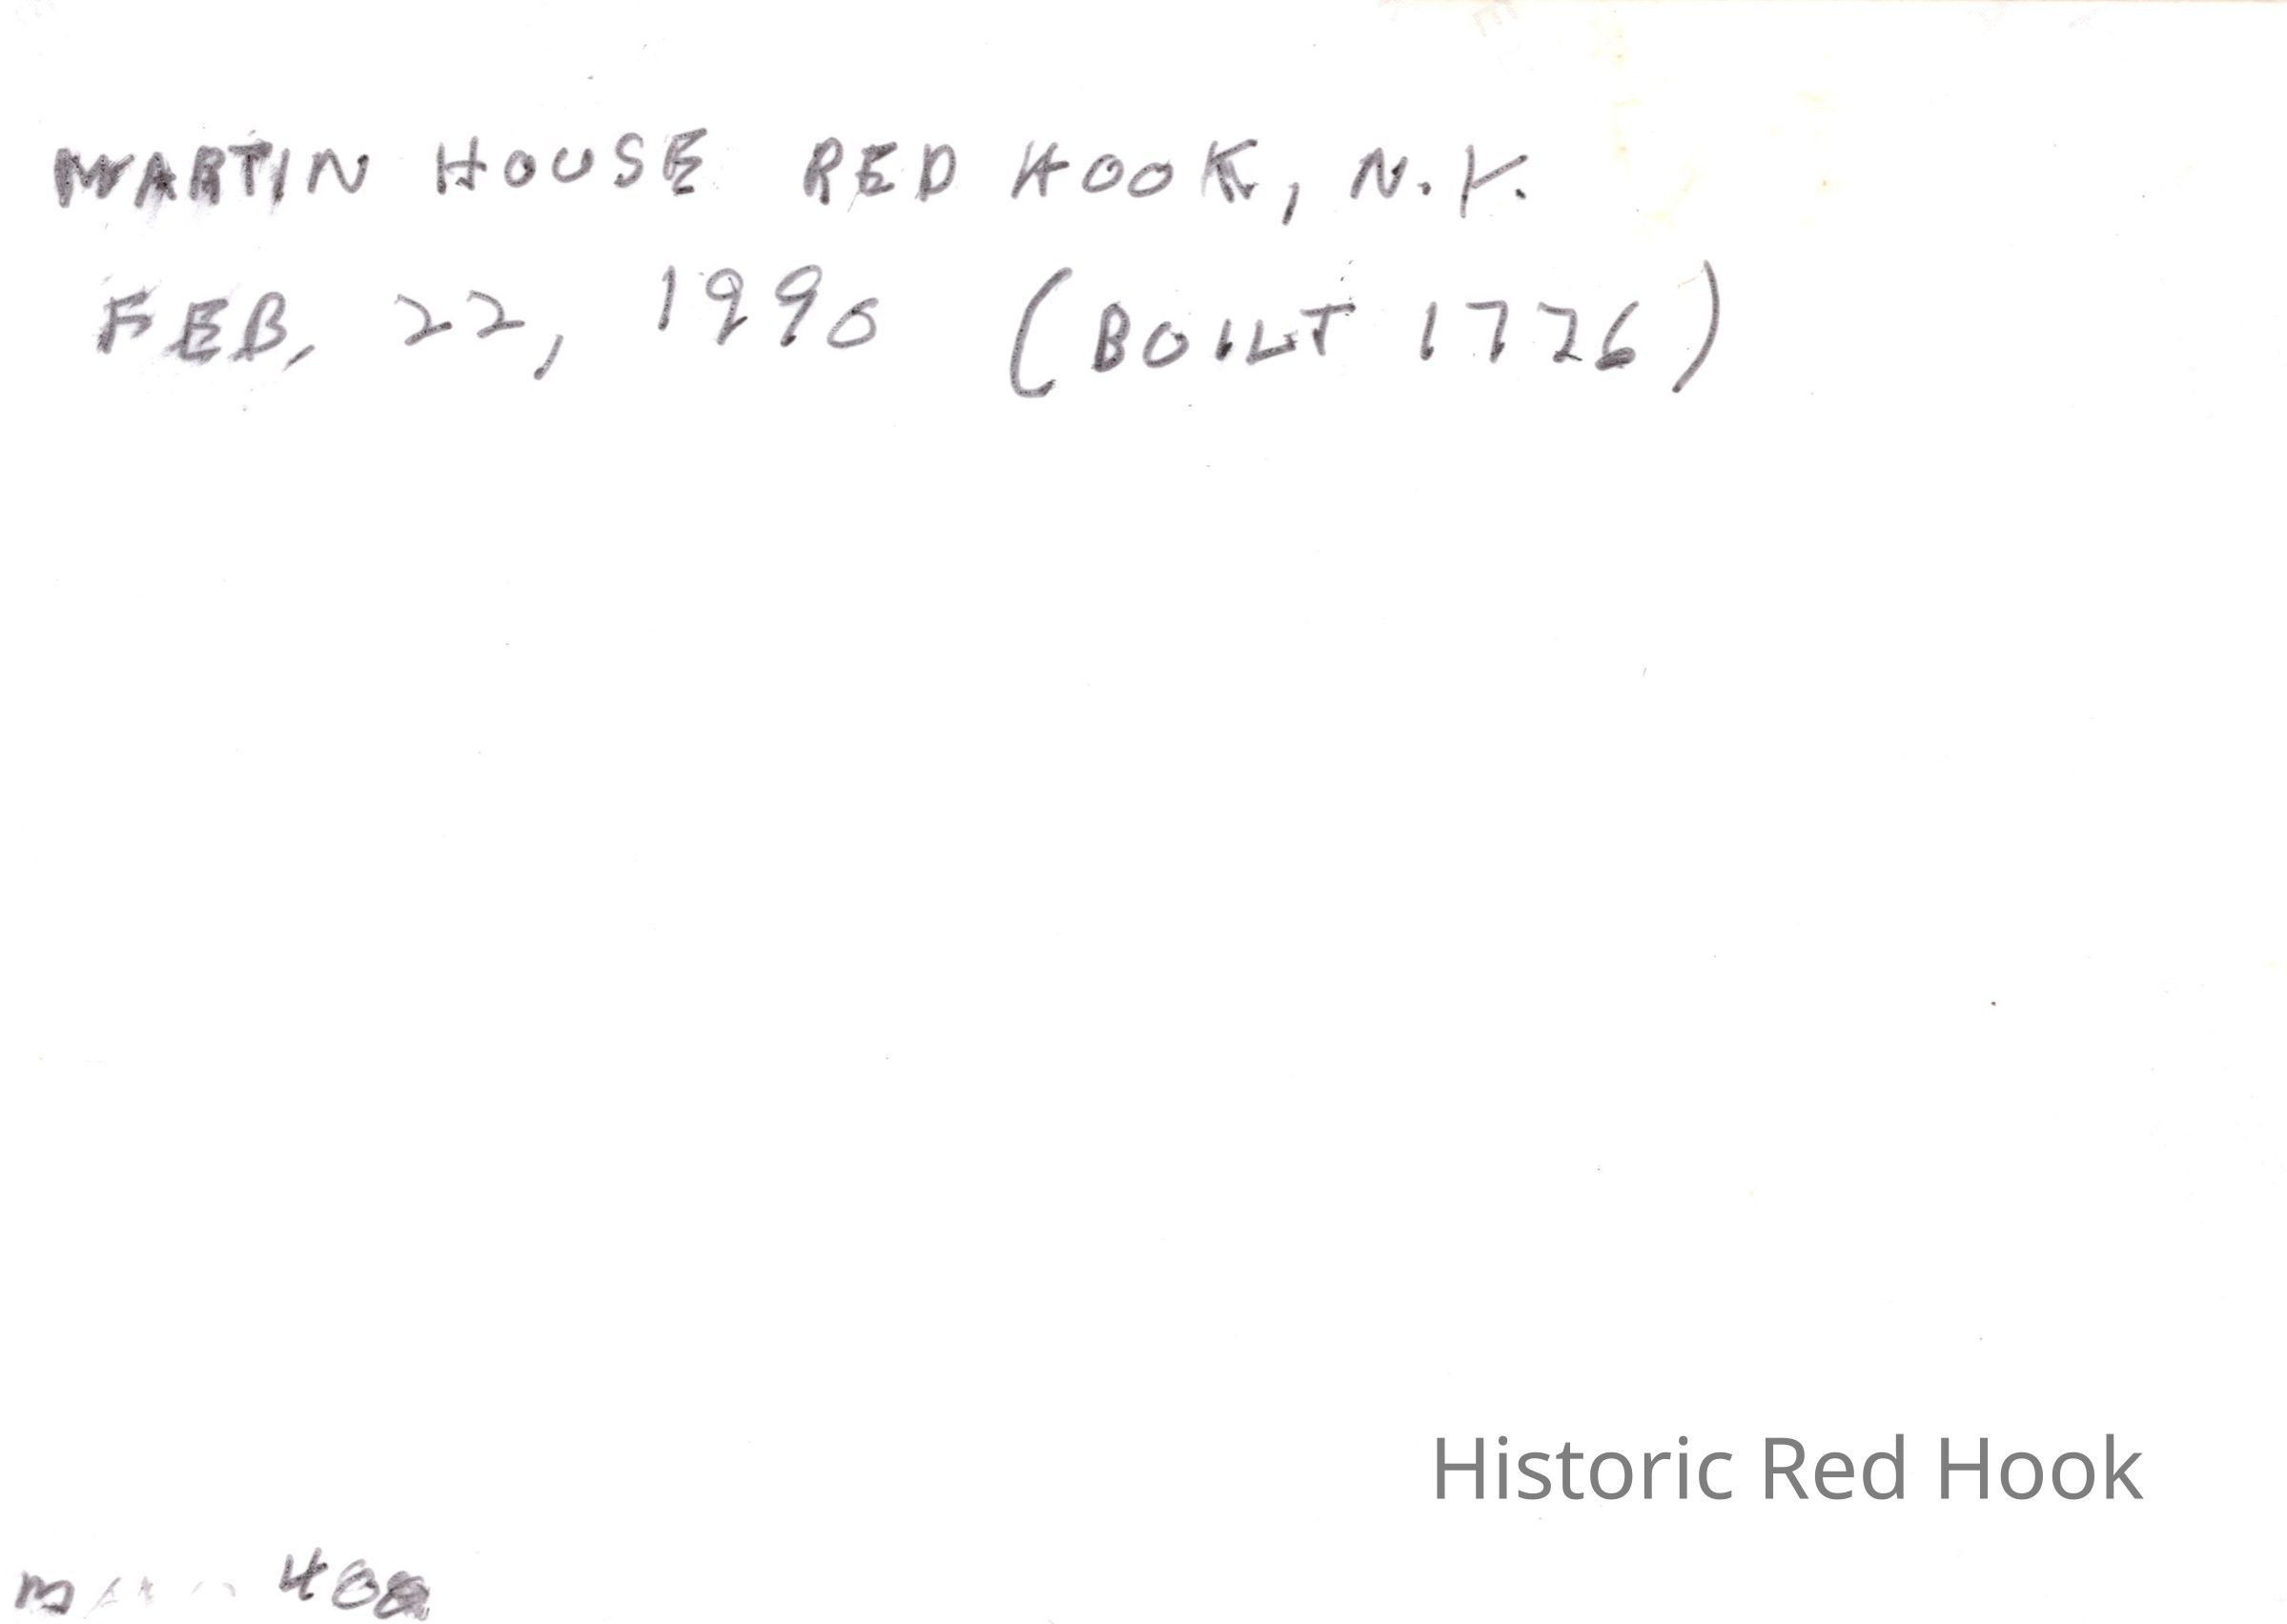 MARTIN HOUSE RED HOOK, N.Y.
FEB, 22, 1990 (BUILT 1776)
Historic Red Hook